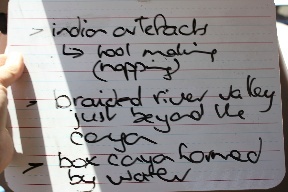 > indian artefacts
↳ tool making
(napping)
> braided river valley
just beyond the
> box formed
by water